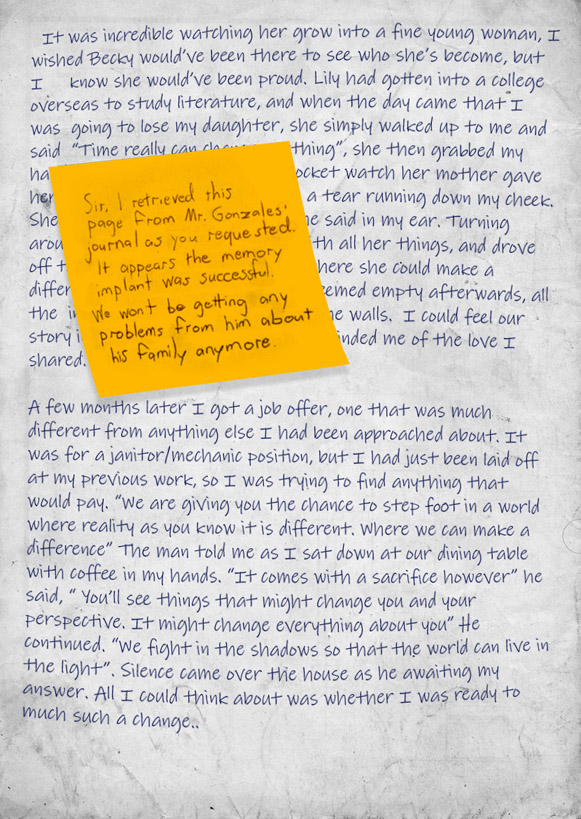 It was incredible watching her grow into a fine young woman, I
wished Becky would've been there to see who she's become, but
I know she would've been proud. Lily had gotten into a college
overseas to study literature, and when the day came that I
was going to lose my daughter, she simply walked up to me and
said "Time really can thing", she then grabbed my
ocket watch her mother gave
her a tear running down my cheek.
She he said in my ear. Turning
arou th all her things, and drove
off t here she could make a
differ emed empty afterwards, all
the i he walls. I could feel our
story i nded me of the love I
shared.
Sir, I retrieved this
page from Mr. Gonzales'
journal as you requested.
It appears the memory
implant was successful.
We won't be getting any
problems from him about
his family anymore.
A few months later I got a job offer, one that was much
different from anything else I had been approached about. It
was for a janitor/mechanic position, but I had just been laid off
at my previous work, so I was trying to find anything that
would pay. "We are giving you the chance to step foot in a world
where reality as you know it is different. Where we can make a
difference" The man told me as I sat down at our dining table
with coffee in my hands. "It comes with a sacrifice however" he
said, " You'll see things that might change you and your
perspective. It might change everything about you" He
continued. "We fight in the shadows so that the world can live in
the light". Silence came over the house as he awaiting my
answer. All I could think about was whether I was ready to
much such a change..